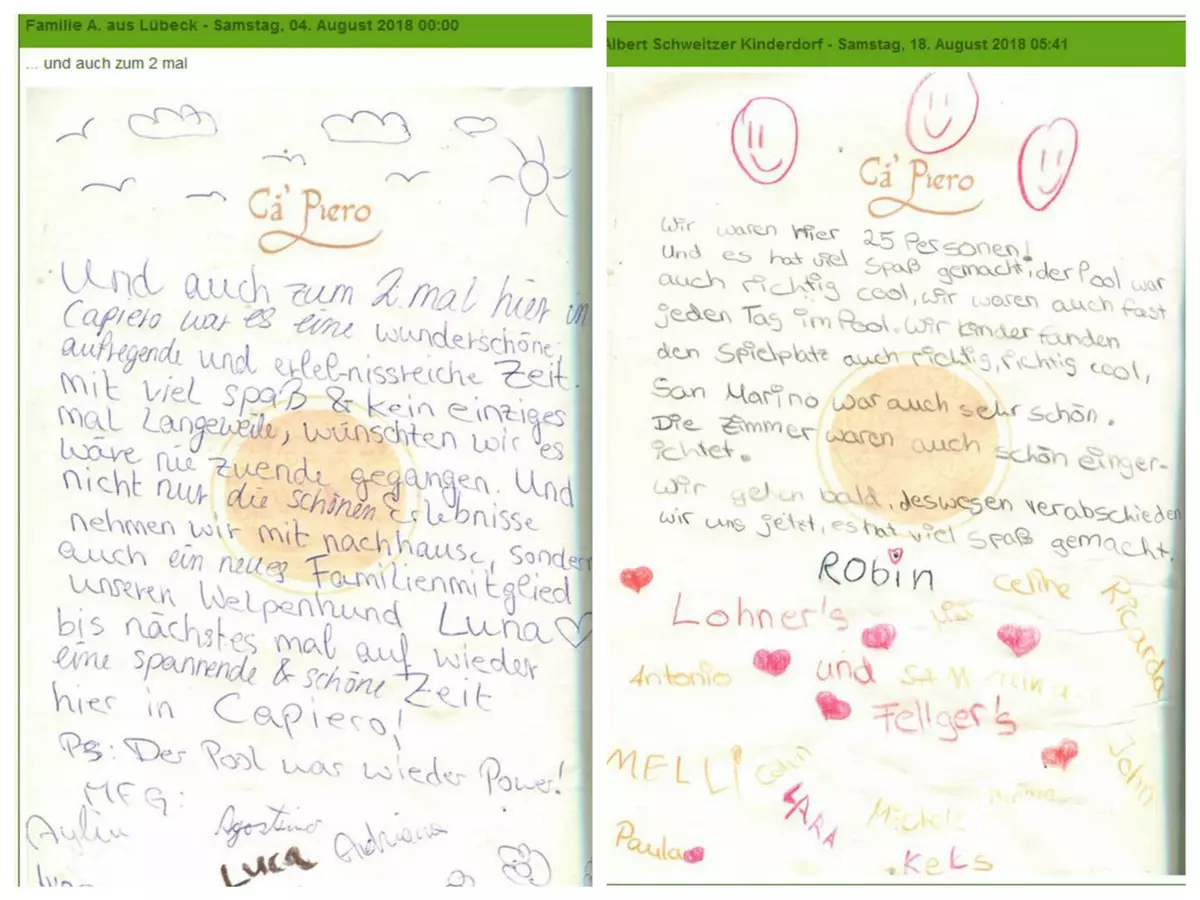 Familie A. aus Lübeck - Samstag, 04. August 2018 00:00
... und auch zum 2 mal
Ca' Piero
Und auch zum 2. mal hier in
Capiero war es eine wunderschöne,
aufregende und erlebnissreiche Zeit.
mit viel spaß & kein einziges
mal Langeweile, wünschten wir es
wäre nie zuende gegangen. Und
nicht nur die schönen Erlebnisse
nehmen wir mit nachhause, sondern
auch ein neues Familienmitglied
unseren Welpenhund Luna
bis nächstes mal auf wieder
eine spannende & schöne Zeit
hier in Capiero!
Ps: Der Pool war wieder Power!
MFG:
Aylin Agostino Adriana
Luca
Albert Schweitzer Kinderdorf - Samstag, 18. August 2018 05:41
Ca' Piero
Wir waren hier 25 Personen!
Und es hat viel Spaß gemacht, der Pool war
auch richtig cool, wir waren auch fast
jeden Tag im Pool. Wir kinder fanden
den Spielplatz auch richtig, richtig cool,
San Marino war auch sehr schön.
Die Zimmer waren auch schön einger-
ichtet.
Wir gehen bald, deswegen verabschieden
wir uns jetzt, es hat viel Spaß gemacht.
Robin
Celine
Ricarda
Lohner's
Antonio und
Fellger's
MELLI
John
LARA
Paula
Keks